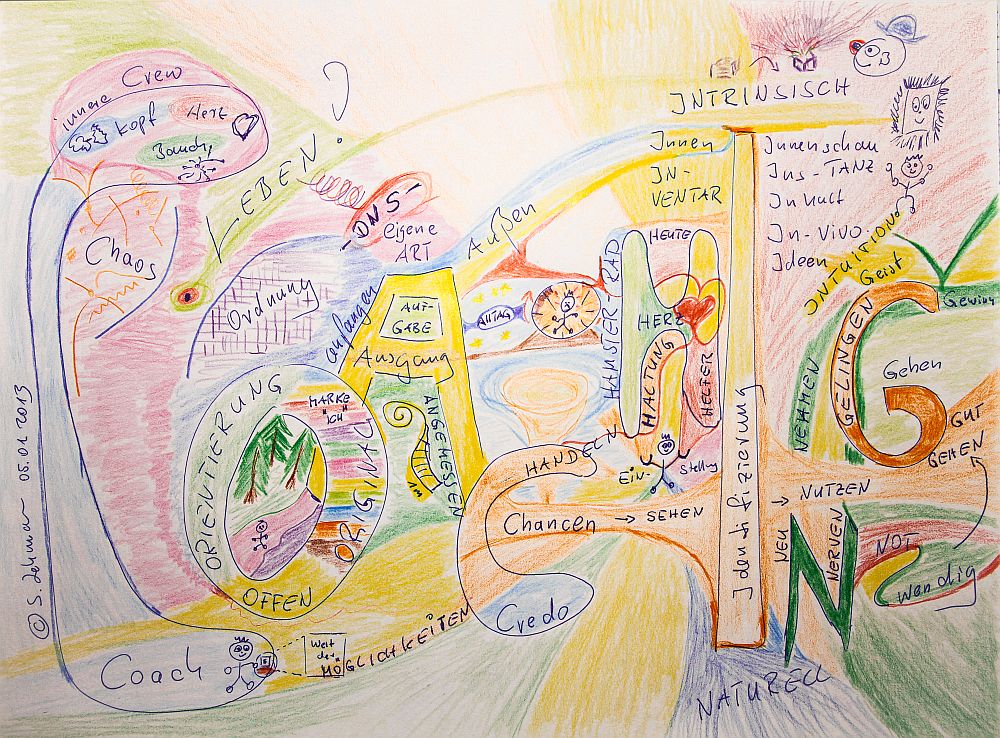 innere Crew
Kopf
Herz
Bauch
Chaos
LEBEN?
-DNS-
eigene
ART
Ordnung
anfangen
Außen
AUF-
GABE
Ausgang
ALLTAG
HAMSTER RAD
HEUTE
HERZ
HALTUNG
HELFER
Innen
IN-
VENTAR
INTRINSISCH
Innenschau
Ins-TANZ
Inhalt
In-vivo
Ideen
INTUITION
Geist
GELINGEN
Gewinn
Gehen
GUT
GEHEN
NEHMEN
ORIENTIERUNG
MARKE
"ICH"
ORIGINAL
OFFEN
ANGEMESSEN
1M
HANDELN
EIN-
Stellung
Chancen → SEHEN
→ NUTZEN
Identifizierung
NEU
NERVEN
NOT
wendig
Credo
Coach
Welt
der
MÖGLICHKEITEN
NATURELL
© S. Lehmann 05.01.2013